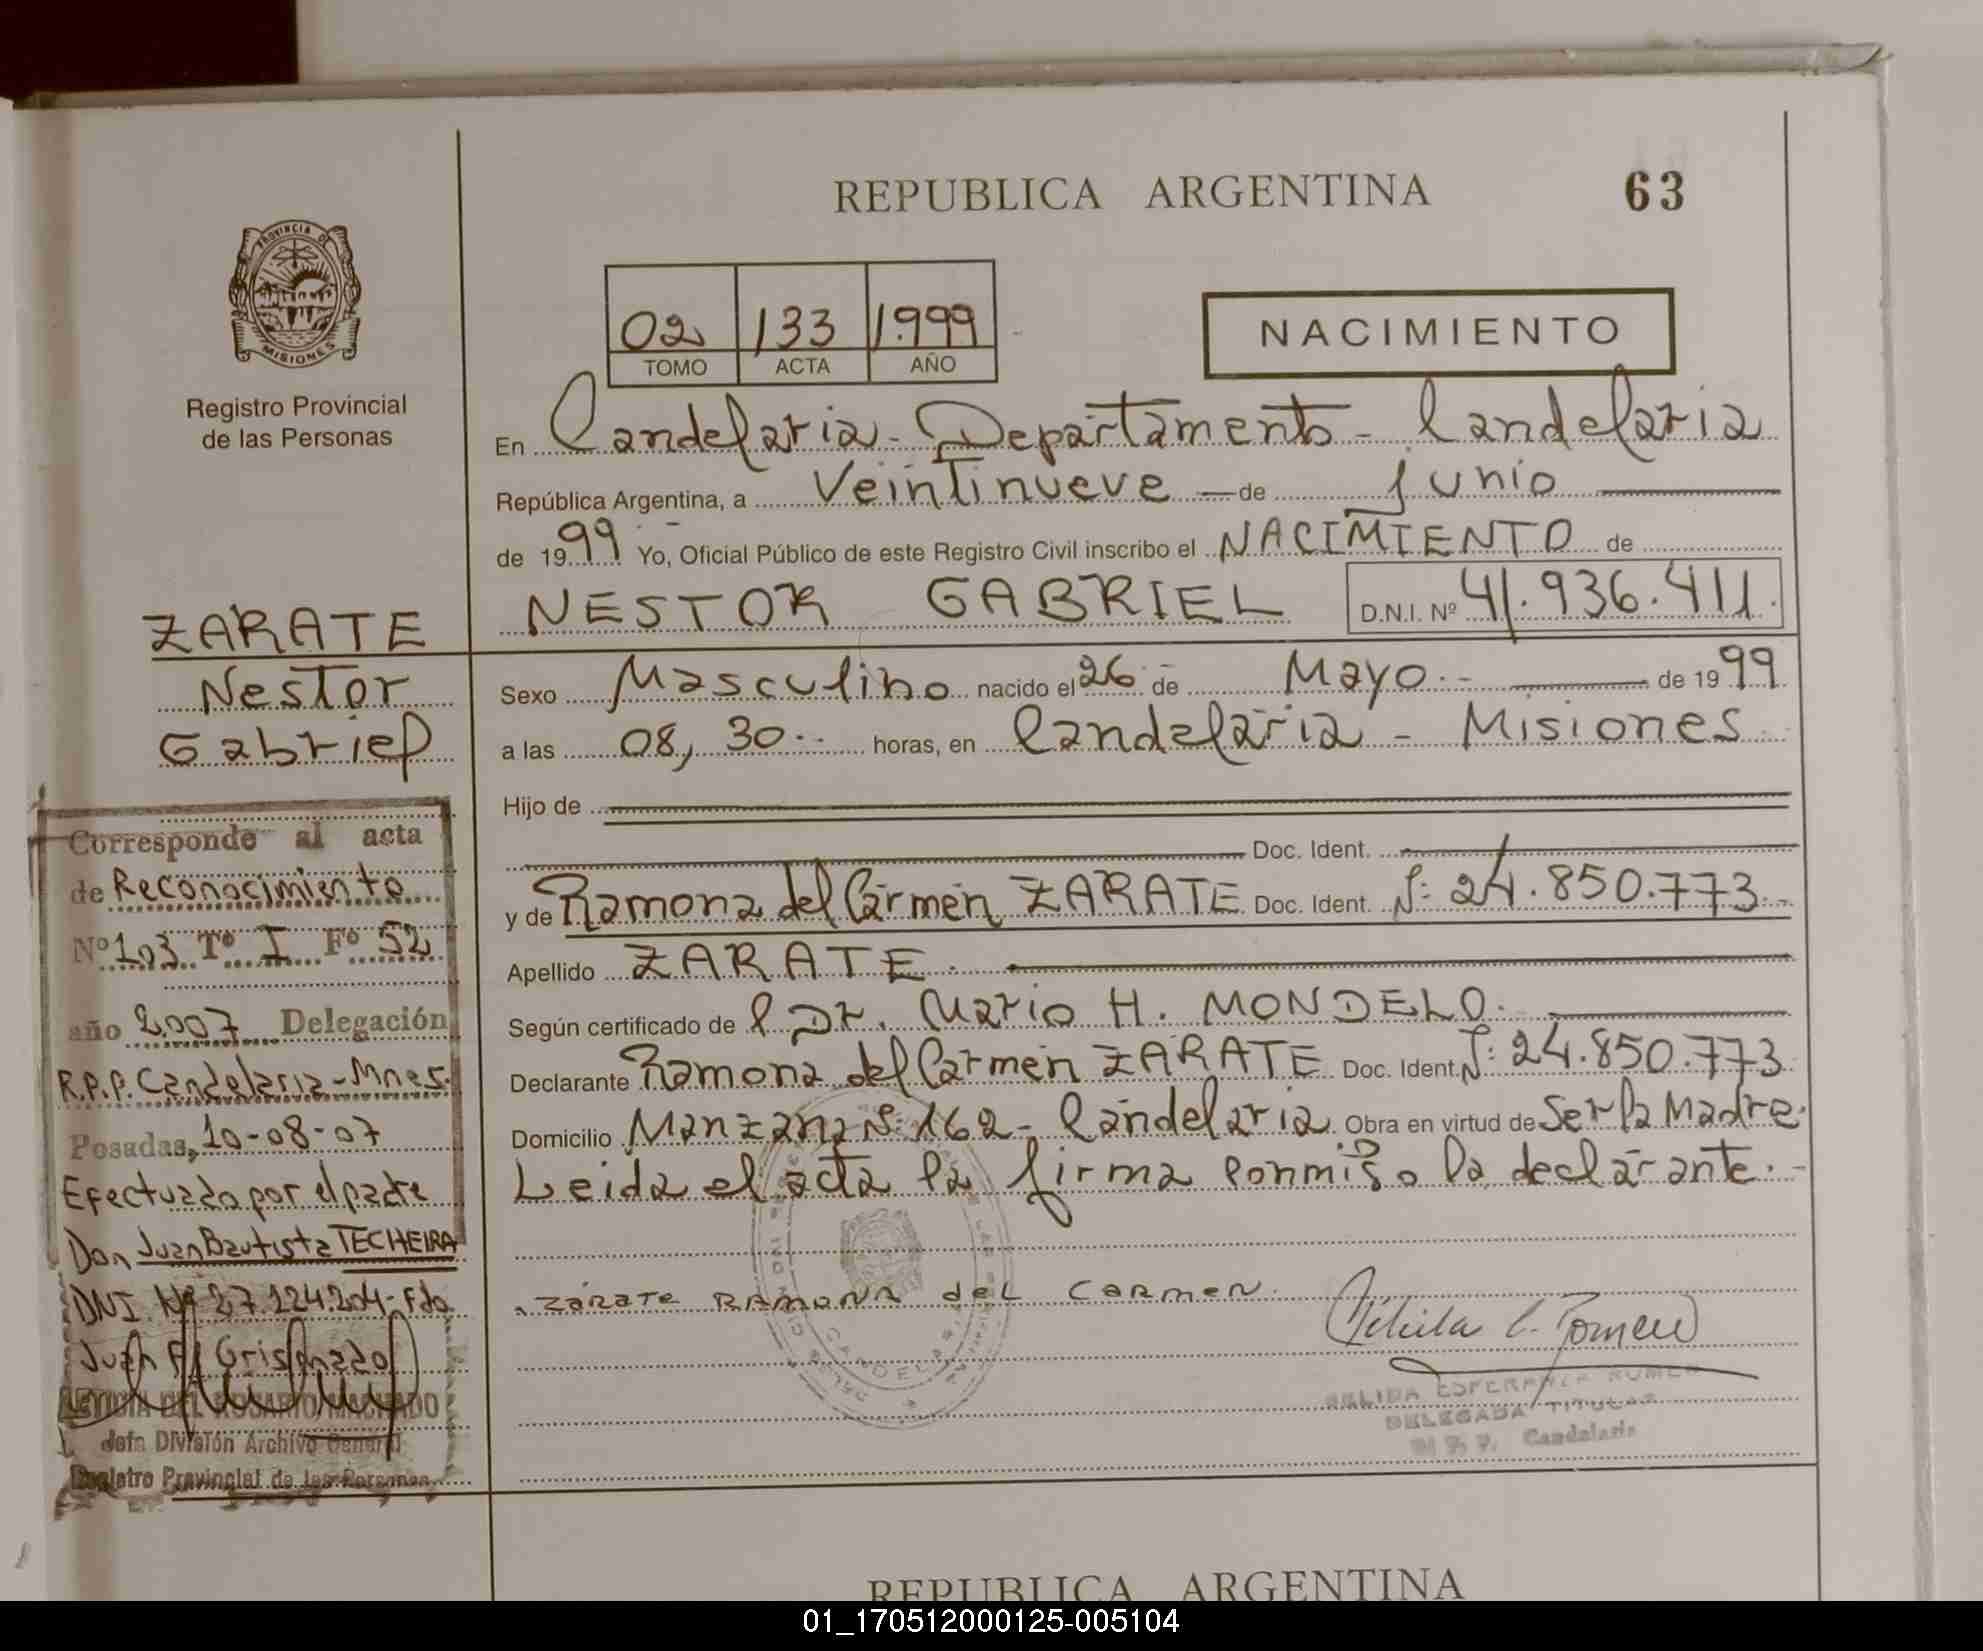 REPUBLICA ARGENTINA 63
PROVINCIA DE
MISIONES
Registro Provincial
de las Personas
02 133 1.999
TOMO ACTA AÑO
NACIMIENTO
En Candelaria - Departamento - Candelaria
República Argentina, a Veintinueve de Junio
de 1999 Yo, Oficial Público de este Registro Civil inscribo el NACIMIENTO de
NESTOR GABRIEL D.N.I. Nº 41.936.411.
Sexo Masculino nacido el 26 de Mayo.- de 1999
a las 08,30.. horas, en Candelaria - Misiones
Hijo de
Doc. Ident.
y de Ramona del Carmen ZARATE Doc. Ident. Nº: 24.850.773.-
Apellido ZARATE.
Según certificado de Dr. Mario H. MONDELO.
Declarante Ramona del Carmen ZARATE Doc. Ident. Nº: 24.850.773
Domicilio Manzana Nº: 162 - Candelaria. Obra en virtud de Ser la Madre.
Leida el acta la firma conmigo la declarante.-
ZARATE RAMONA del CARMEN.
DELEGADA TITULAR
Candelaria
ZARATE
Nestor
Gabriel
Corresponde al acta
de Reconocimiento
Nº 103 Tº I Fº 52
año 2.007 Delegación
R.P.P. Candelaria - Mnes.
Posadas, 10-08-07
Efectuado por el padre
Don Juan Bautista TECHEIRA
DNI. Nº 27.224.204 - Fdo
Juan
LETICIA DEL ROSARIO MACHADO
Jefa División Archivo General
Registro Provincial de las Personas
REPUBLICA ARGENTINA
01_170512000125-005104